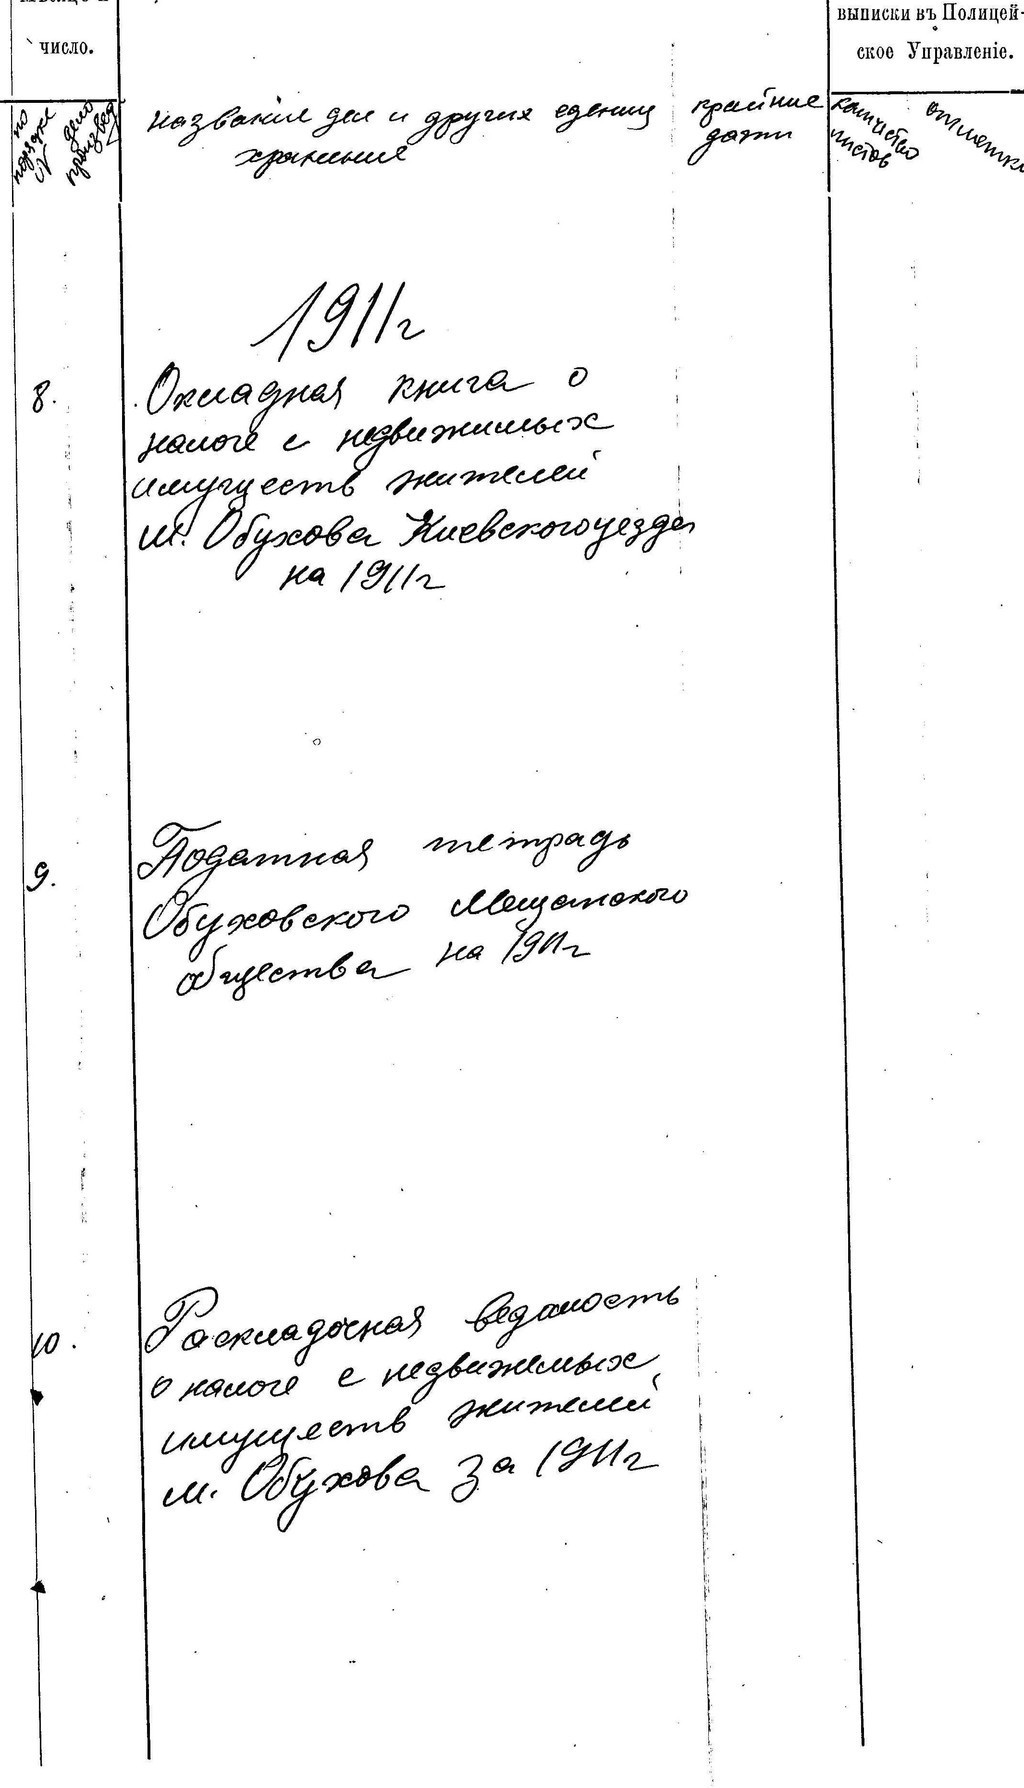 число.
выписки въ Полицей-
ское Управленіе.
по порядке №
дело произвед
название дел и других едениц
хранения
крайние
даты
количество
листов
отметки
1911г
8. Окладная книга о
налоге с недвижимых
имуществ жителей
м. Обухова Киевского уезда
на 1911г
9. Податная тетрадь
Обуховского Мещанского
общества на 1911г
10. Раскладочная ведомость
о налоге с недвижемых
имуществ жителей
м. Обухова за 1911г